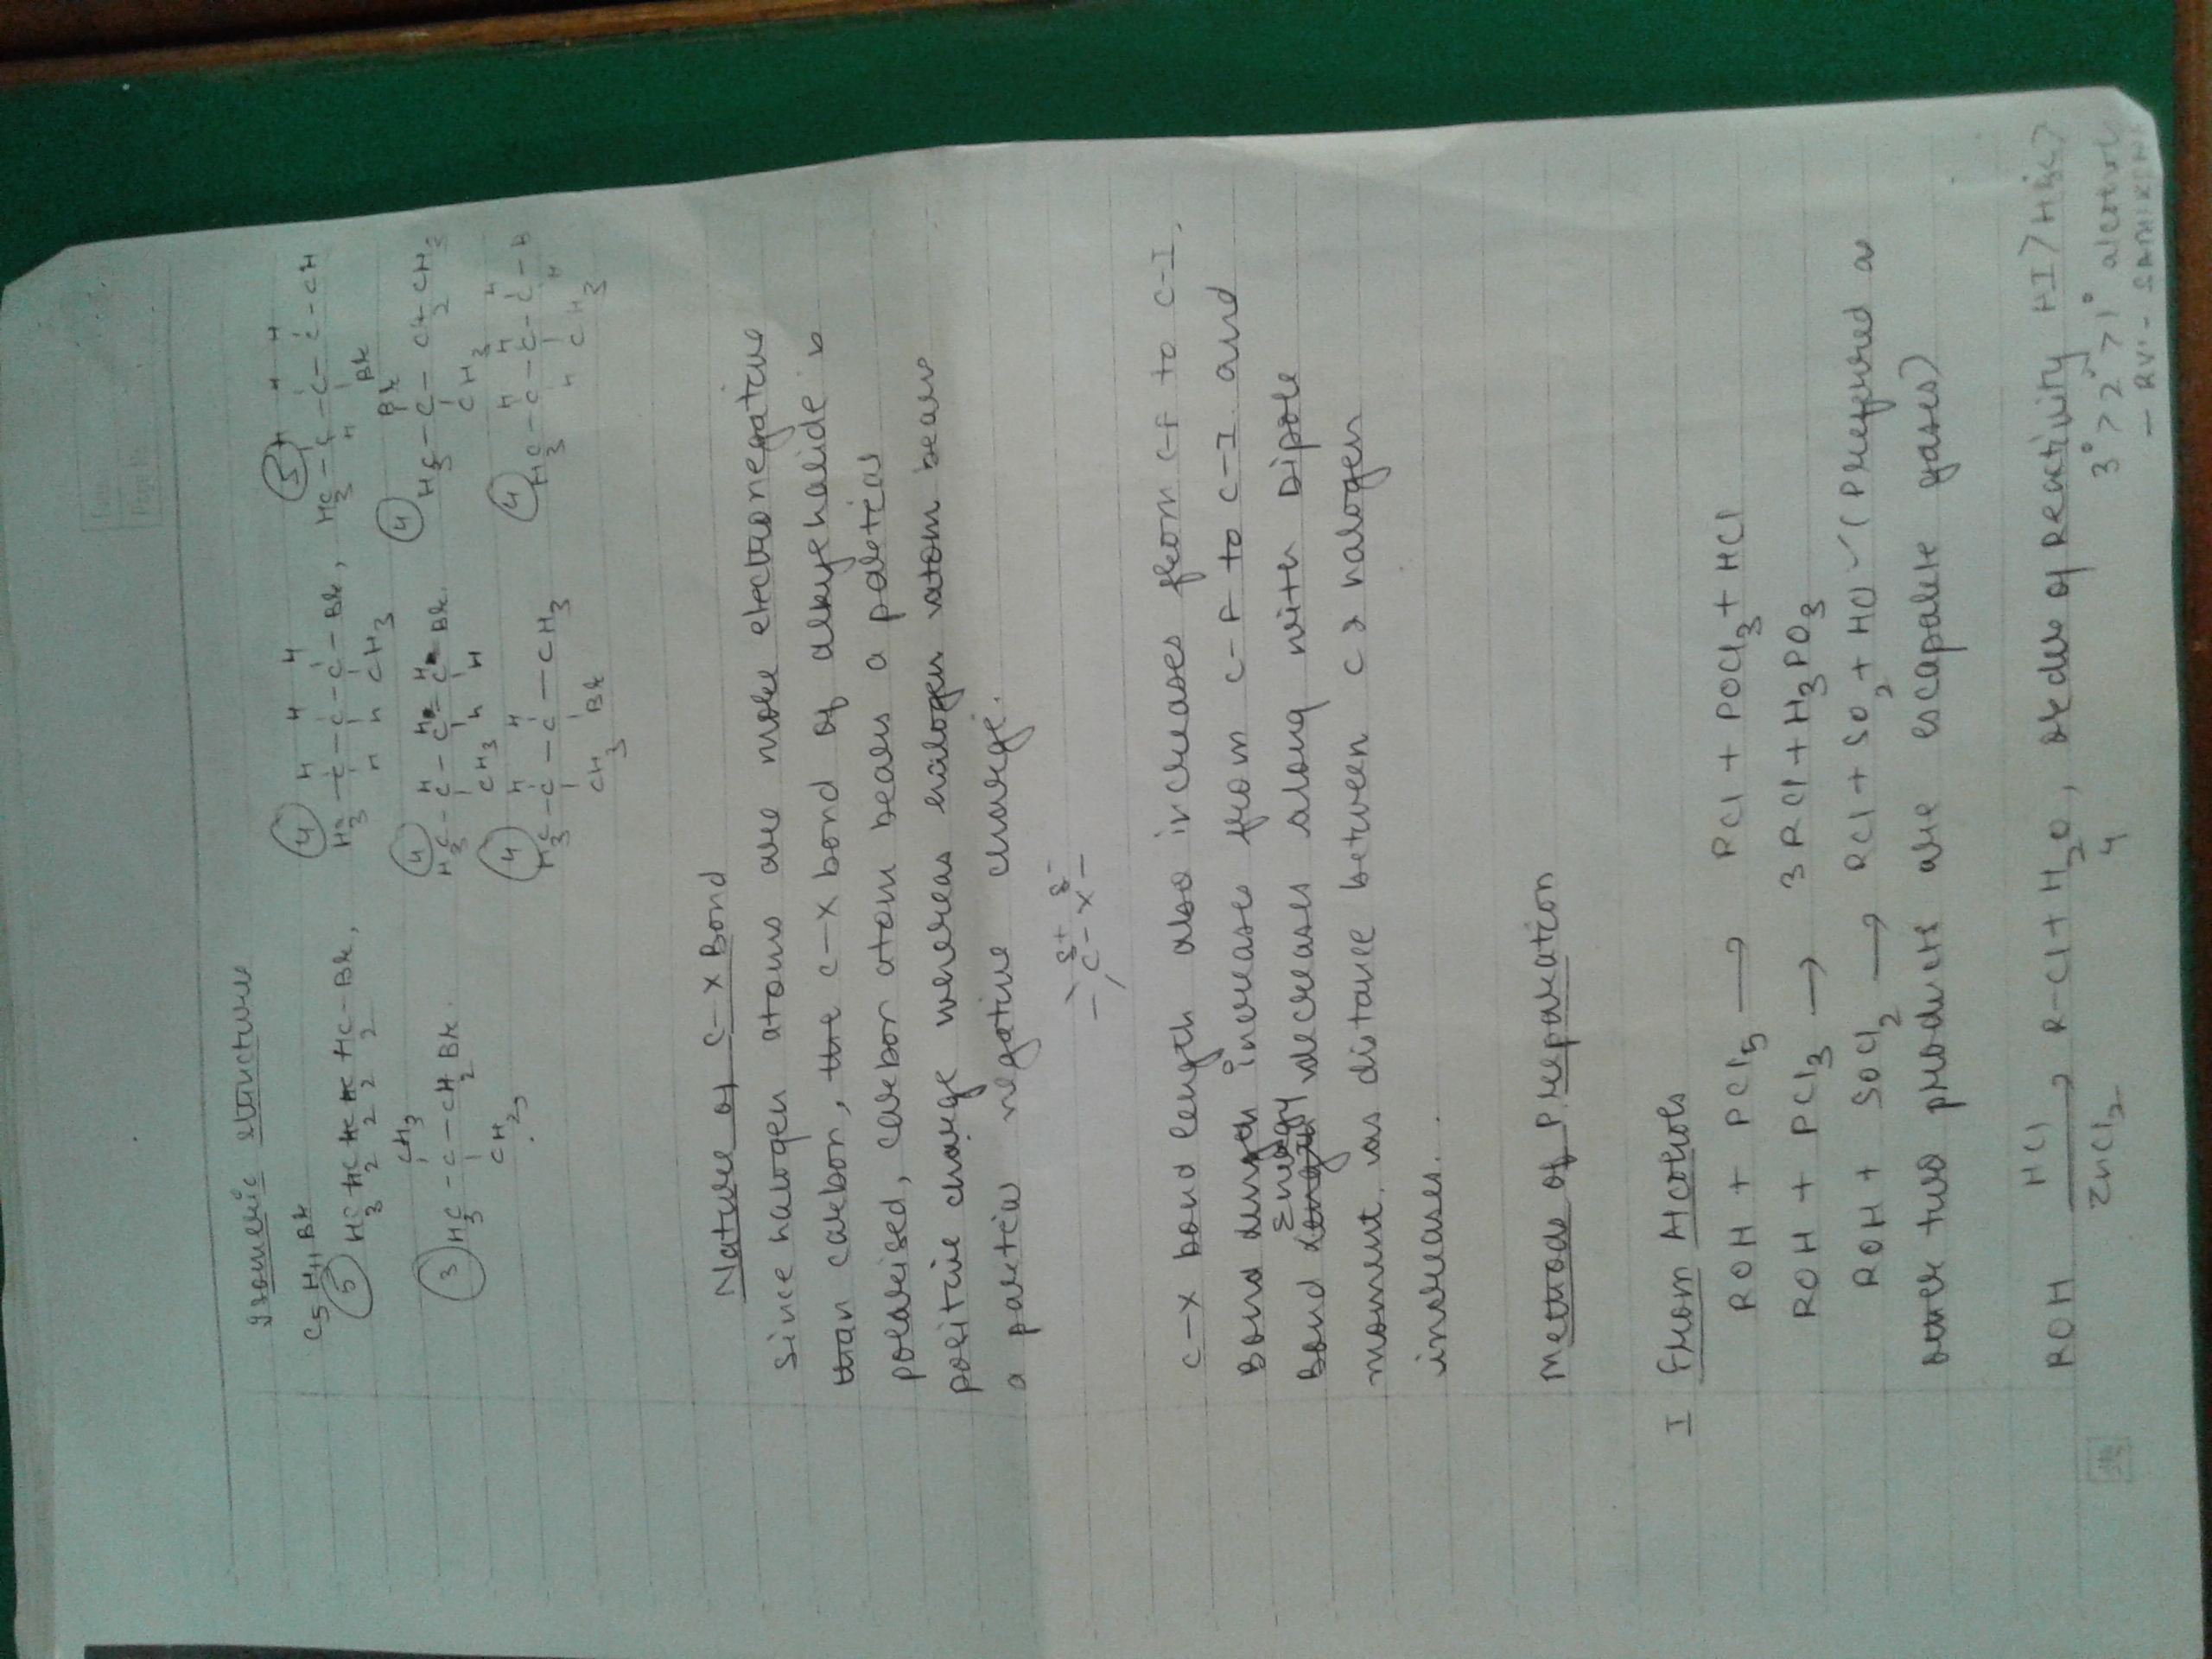 Isomeric structure
C5H11Br
(5) H3C H2C H2C H2C H2C-Br,
(4)
(5)
(3) H3C-C-CH2Br.
CH3
(4)
(4) H3C-C-CH2CH3
Br
CH3
(4) H3C-C-C-CH3
H H
CH3 Br
(4)
Nature of C-X Bond
Since halogen atoms are more electronegative
than carbon, the C-X bond of alkylehalide is
polarised, carbon atom bears a partical
positive charge whereas halogen atom bears
a partial negative charge.
δ+ δ-
-C-X-
C-X bond length also increases from C-F to C-I,
Bond length increases from C-F to C-I. and
Bond Energy decreases along with Dipole
moment. as distance between C & halogen
increases.
Methods of Preparation
I From Alcohols
ROH + PCl5 → RCl + POCl3 + HCl
ROH + PCl3 → 3RCl + H3PO3
ROH + SOCl2 → RCl + SO2 + HCl (Preferred as
other two products are escapable gases)
ROH HCl → R-Cl + H2O, order of Reactivity HI>HBr>
ZnCl2
4
3° > 2° > 1° alcohol